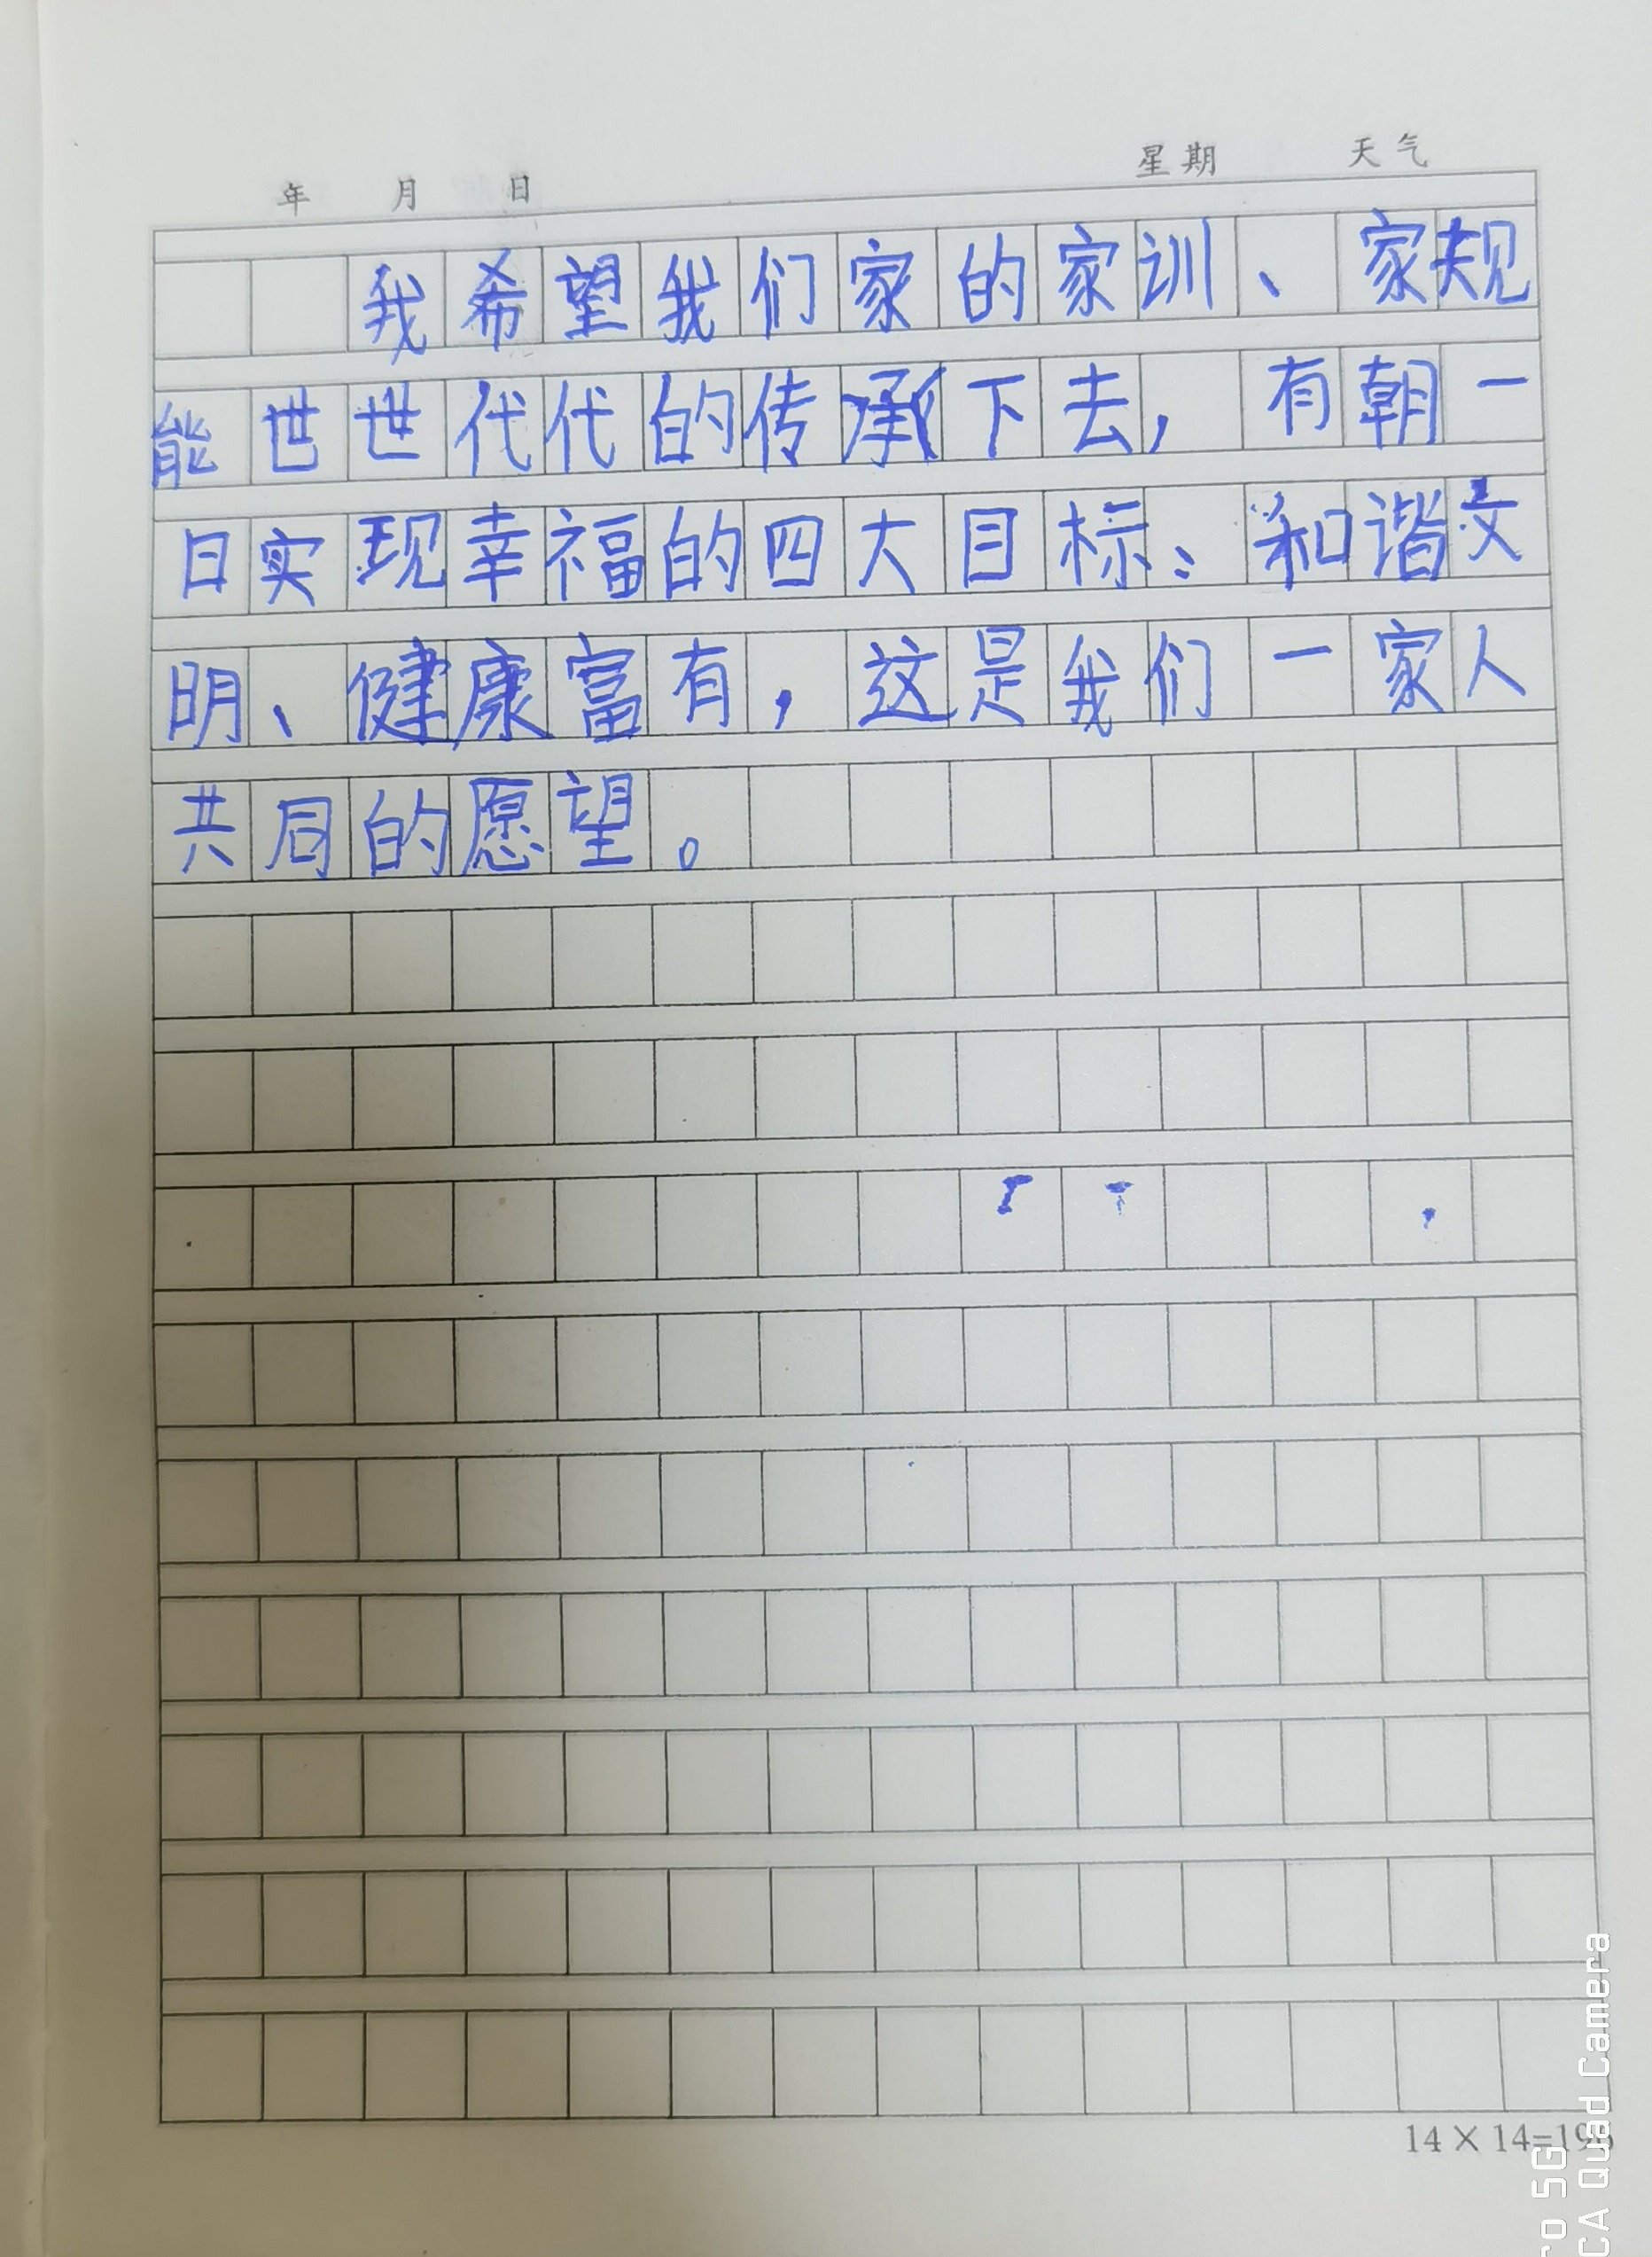 年 月 日 星期 天气
我希望我们家的家训、家规
能世世代代的传承下去，有朝一
日实现幸福的四大目标：和谐文
明、健康富有，这是我们一家人
共同的愿望。
14×14=196
ro 5G
CA Quad Camera